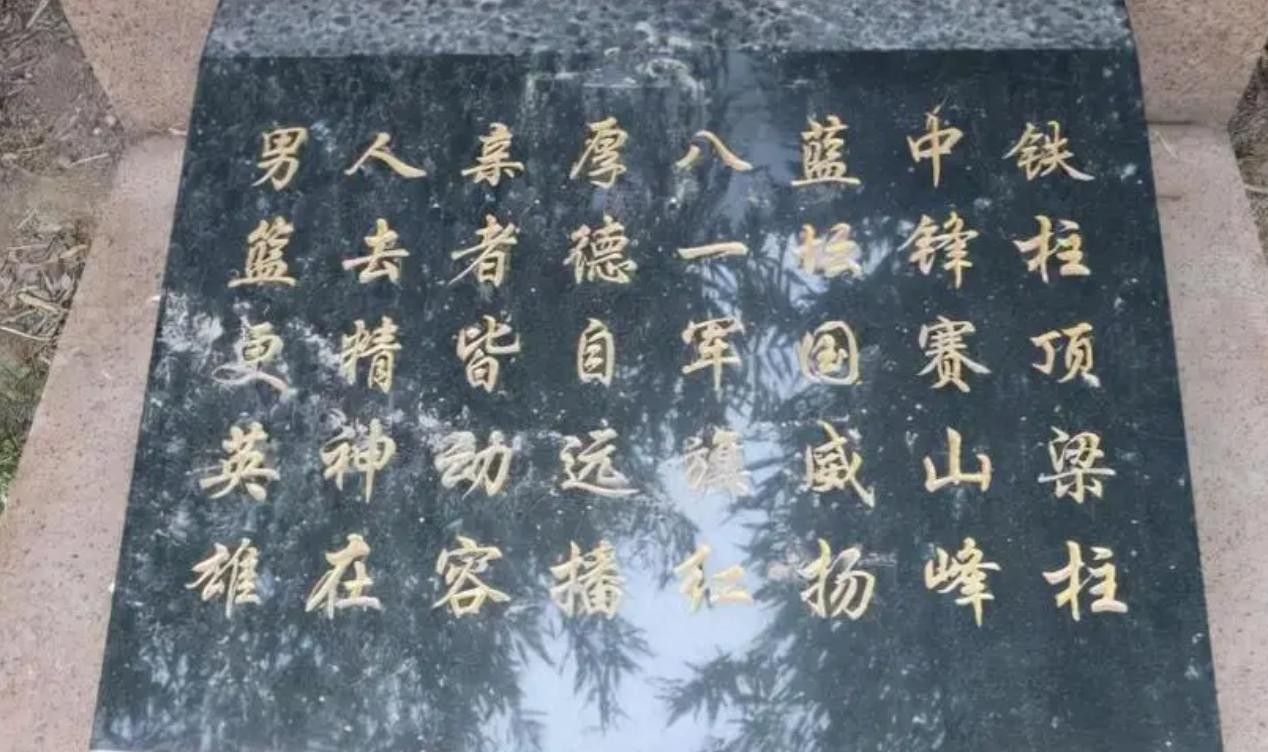 铁柱顶梁柱
中锋赛山峰
蓝坛国威扬
八一军旗红
厚德自远播
亲者皆动容
人去精神在
男篮更英雄